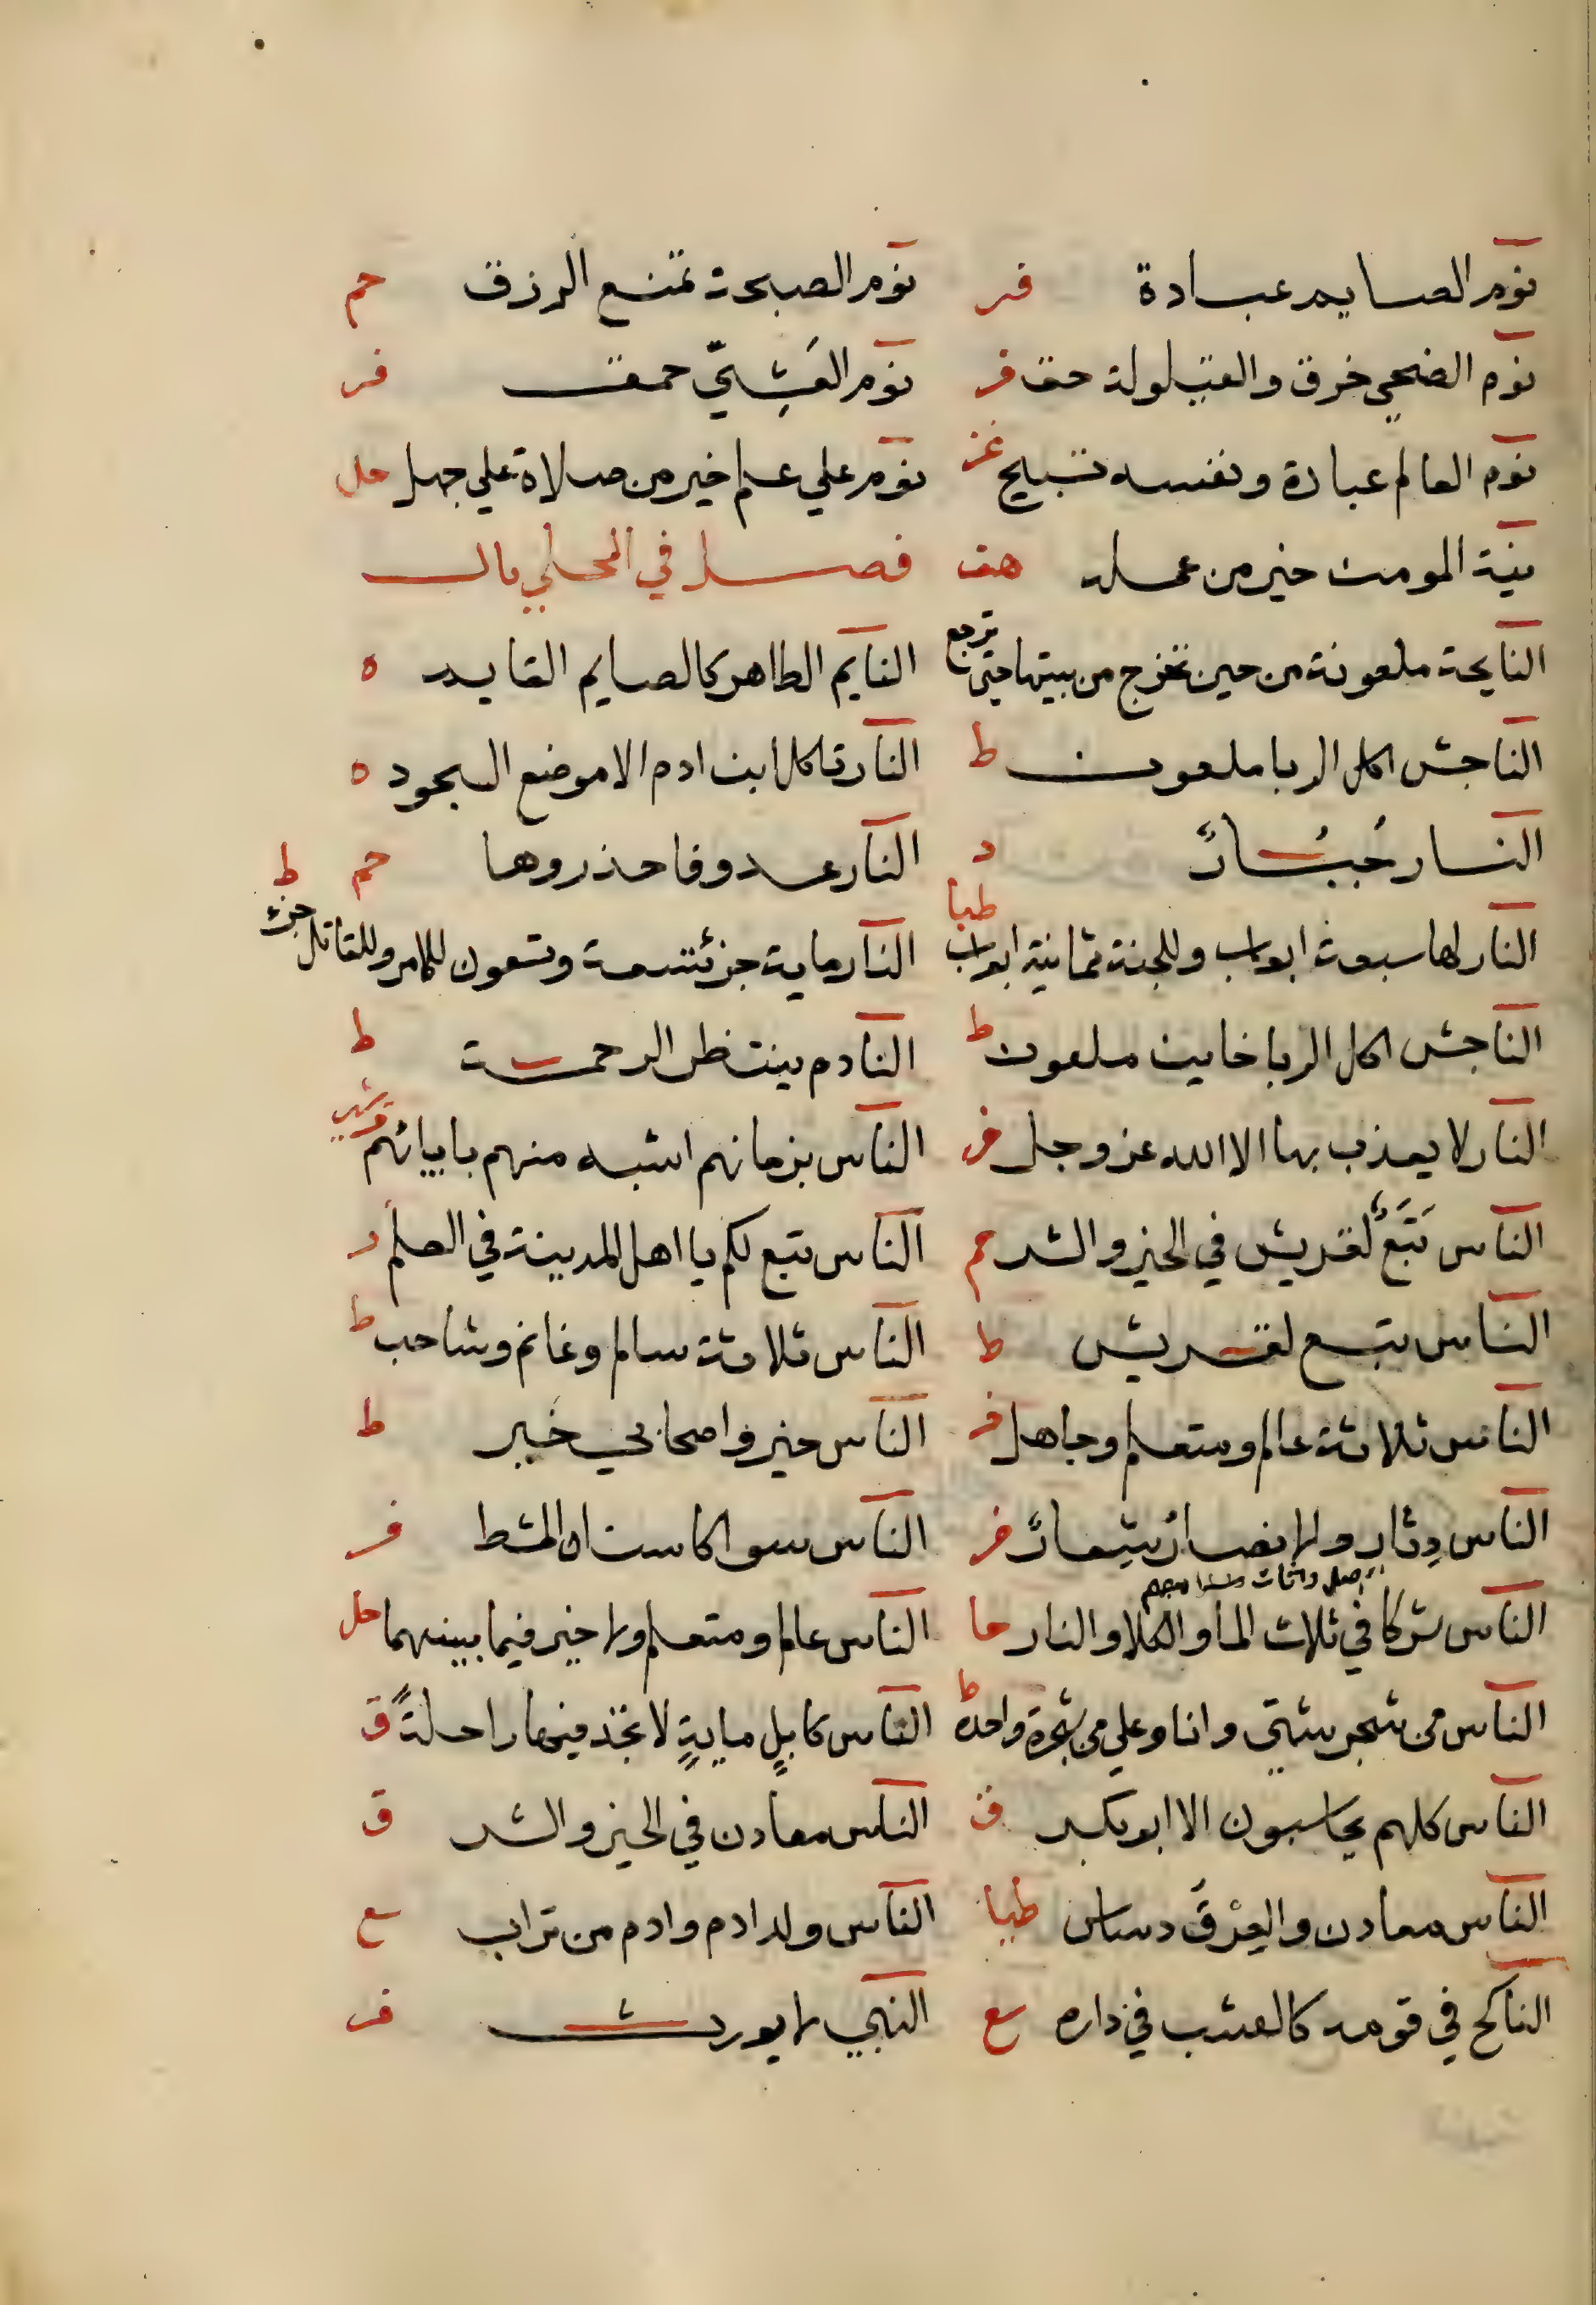 نوم الصايم عبادة فر نوم الصبحة تمنع الرزق حم
نوم الضحي خرق والقيلولة حق فر نوم العَشِيّ حمق فر
نوم العالم عبادة ونفسه تسبيح عز نوم علي علم خير من صلاة علي جهل حل
نية المومن خير من عمله هق فصل في المحلي بال
النايحة ملعونة من حين تخرج من بيتها حتي ترجع النايم الطاهر كالصايم القايم ه
الناجش اكل الربا ملعون ط النار تاكل ابن ادم الا موضع السجود ه
النار جُبُارٌ د النار عدو فاحذروها حم
النار لها سبعة ابواب وللجنة ثمانية ابواب طيا النار ماية جز تسعة وتسعون للامر وللقاتل جزء ط
الناجش اكل الربا خاين ملعون ط النادم ينتظر الرحمة ط
النار لا يعذب بها الا الله عز وجل فر الناس بزمانهم اشبه منهم باباائهم
الناس تَبَعٌ لقريش في الخير والشر م الناس تبع لكم يا اهل المدينة في العلم ر
الناس تبع لقريش ط الناس ثلاثة سالم وغانم وشاحب ط
الناس ثلاثة عالم ومتعلم وجاهل فر الناس حيز واصحابي حَيز ط
الناس دِثار والانصار شِعارٌ فر الناس سوا كاسنان المشط فر
الناس شركا في ثلاث الماء والكلا والنار حا الناس عالم ومتعلم ولا خير فيما بينهما حل
الناس من شجر شتي وانا وعلي من شجرة واحدة ط الناس كابلٍ مايةٍ لا تجد فيها راحلةً ق
الناس كلهم يحاسبون الا ابو بكر ق الناس معادن في الخير والشر ق
الناس معادن والعِرْقَ دساس طيا الناس ولد ادم وادم من تراب سع
الناكح في قومه كالمعشب في داره سع النبي لا يورث فر